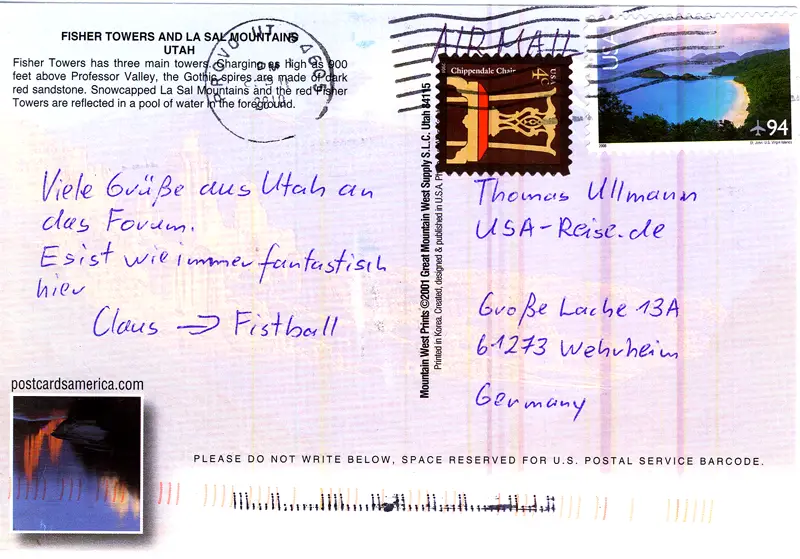 FISHER TOWERS AND LA SAL MOUNTAINS
UTAH
Fisher Towers has three main towers. Charging as high as 900
feet above Professor Valley, the Gothic spires are made of dark
red sandstone. Snowcapped La Sal Mountains and the red Fisher
Towers are reflected in a pool of water in the foreground.
PROVO UT 84605
2010
AIR MAIL
Chippendale Chair
4c
USA
USA
94
Viele Grüße aus Utah an
das Forum.
Es ist wie immer fantastisch
hier
Claus → Fistball
Mountain West Prints ©2001 Great Mountain West Supply S.L.C. Utah 84115
Printed in Korea. Created, designed & published in U.S.A.
Thomas Ullmann
USA-Reise.de
Große Lache 13A
61273 Wehrheim
Germany
postcardsamerica.com
PLEASE DO NOT WRITE BELOW, SPACE RESERVED FOR U.S. POSTAL SERVICE BARCODE.